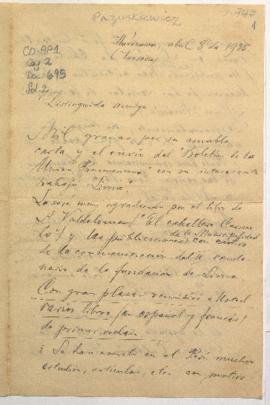 PAZURKIEWICZ
CO-BP1
Caj 2
Doc 695
Fol. 2
1
abril 8 de 1935
Distinguido amigo:
Mil gracias por su amable
carta y el envío del Boletín de la
Unión Panamericana con su interesante
trabajo "Lima".
Le soy muy agradecido por el libro de
A. Valdelomar "El caballero Carme
lo" y las publicaciones de la Municipalidad con motivo
de la conmemoración del IV cente
nario de la fundación de Lima
Con gran placer remitiré a Usted
varios libros (en español y francés)
de
¿Se han escrito en el Perú muchos
estudios, artículos, etc. con motivo